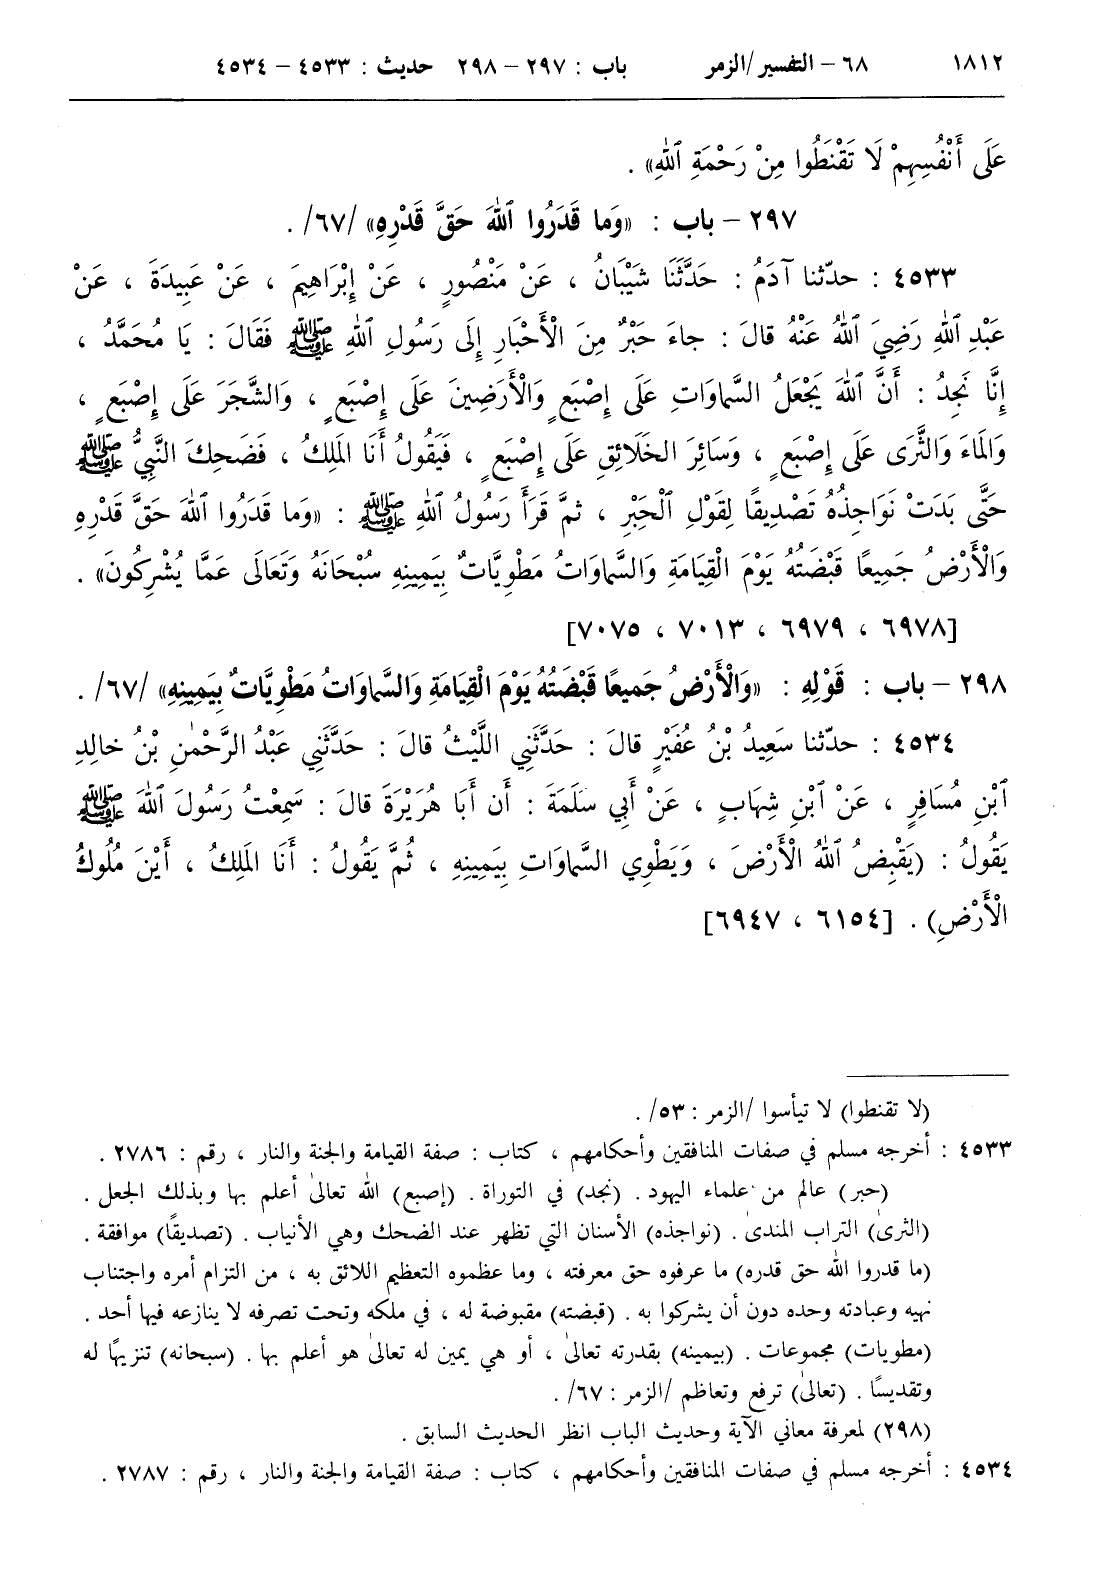 ١٨١٢ ٦٨ – التفسير/الزمر باب : ٢٩٧ – ٢٩٨ حديث : ٤٥٣٣ – ٤٥٣٤
عَلَى أَنْفُسِهِمْ لَا تَقْنَطُوا مِنْ رَحْمَةِ ٱللهِ» .
٢٩٧ – باب : «وَما قَدَرُوا ٱللهَ حَقَّ قَدْرِهِ» /٦٧/ .
٤٥٣٣ : حدّثنا آدَمُ : حَدَّثَنَا شَيْبَانُ ، عَنْ مَنْصُورٍ ، عَنْ إِبْرَاهِيمَ ، عَنْ عَبِيدَةَ ، عَنْ
عَبْدِ ٱللهِ رَضِيَ ٱللهُ عَنْهُ قالَ : جاءَ حَبْرٌ مِنَ الْأَحْبَارِ إِلَى رَسُولِ ٱللهِ ﷺ فَقَالَ : يَا مُحَمَّدُ ،
إِنَّا نَجِدُ : أَنَّ ٱللهَ يَجْعَلُ السَّمَاوَاتِ عَلَى إِصْبَعٍ وَالْأَرَضِينَ عَلَى إِصْبَعٍ ، وَالشَّجَرَ عَلَى إِصْبَعٍ ،
وَالمَاءَ وَالثَّرَى عَلَى إِصْبَعٍ ، وَسَائِرَ الخَلَائِقِ عَلَى إِصْبَعٍ ، فَيَقُولُ أَنَا المَلِكُ ، فَضَحِكَ النَّبِيُّ ﷺ
حَتَّى بَدَتْ نَوَاجِذُهُ تَصْدِيقًا لِقَوْلِ الْحَبْرِ ، ثمَّ قَرَأَ رَسُولُ ٱللهِ ﷺ : «وَما قَدَرُوا ٱللهَ حَقَّ قَدْرِهِ
وَالْأَرْضُ جَمِيعًا قَبْضَتُهُ يَوْمَ الْقِيَامَةِ وَالسَّمَاوَاتُ مَطْوِيَّاتٌ بِيَمِينِهِ سُبْحَانَهُ وَتَعَالَى عَمَّا يُشْرِكُونَ» .
[٦٩٧٨ ، ٦٩٧٩ ، ٧٠١٣ ، ٧٠٧٥]
٢٩٨ – باب : قَوْلِهِ : «وَالْأَرْضُ جَمِيعًا قَبْضَتُهُ يَوْمَ الْقِيَامَةِ وَالسَّمَاوَاتُ مَطْوِيَّاتٌ بِيَمِينِهِ» /٦٧/ .
٤٥٣٤ : حدّثنا سَعِيدُ بْنُ عُفَيْرٍ قالَ : حَدَّثَنِي اللَّيْثُ قالَ : حَدَّثَنِي عَبْدُ الرَّحْمٰنِ بْنُ خالِدِ
ٱبْنِ مُسَافِرٍ ، عَنْ ٱبْنِ شِهَابٍ ، عَنْ أَبِي سَلَمَةَ : أَن أَبَا هُرَيْرَةَ قالَ : سَمِعْتُ رَسُولَ ٱللهِ ﷺ
يَقُولُ : (يَقْبِضُ ٱللهُ الْأَرْضَ ، وَيَطْوِي السَّمَاوَاتِ بِيَمِينِهِ ، ثُمَّ يَقُولُ : أَنَا المَلِكُ ، أَيْنَ مُلُوكُ
الْأَرْضِ) . [٦١٥٤ ، ٦٩٤٧]
(لا تقنطوا) لا تيأسوا /الزمر : ٥٣/ .
٤٥٣٣ : أخرجه مسلم في صفات المنافقين وأحكامهم ، كتاب : صفة القيامة والجنة والنار ، رقم : ٢٧٨٦ .
(حبر) عالم من علماء اليهود . (نجد) في التوراة . (إصبع) الله تعالىٰ أعلم بها وبذلك الجعل .
(الثرىٰ) التراب المندىٰ . (نواجذه) الأسنان التي تظهر عند الضحك وهي الأنياب . (تصديقًا) موافقة .
(ما قدروا الله حق قدره) ما عرفوه حق معرفته ، وما عظموه التعظيم اللائق به ، من التزام أمره واجتناب
نهيه وعبادته وحده دون أن يشركوا به . (قبضته) مقبوضة له ، في ملكه وتحت تصرفه لا ينازعه فيها أحد .
(مطويات) مجموعات . (بيمينه) بقدرته تعالىٰ ، أو هي يمين له تعالىٰ هو أعلم بها . (سبحانه) تنزيهًا له
وتقديسًا . (تعالىٰ) ترفع وتعاظم /الزمر : ٦٧/ .
(٢٩٨) لمعرفة معاني الآية وحديث الباب انظر الحديث السابق .
٤٥٣٤ : أخرجه مسلم في صفات المنافقين وأحكامهم ، كتاب : صفة القيامة والجنة والنار ، رقم : ٢٧٨٧ .